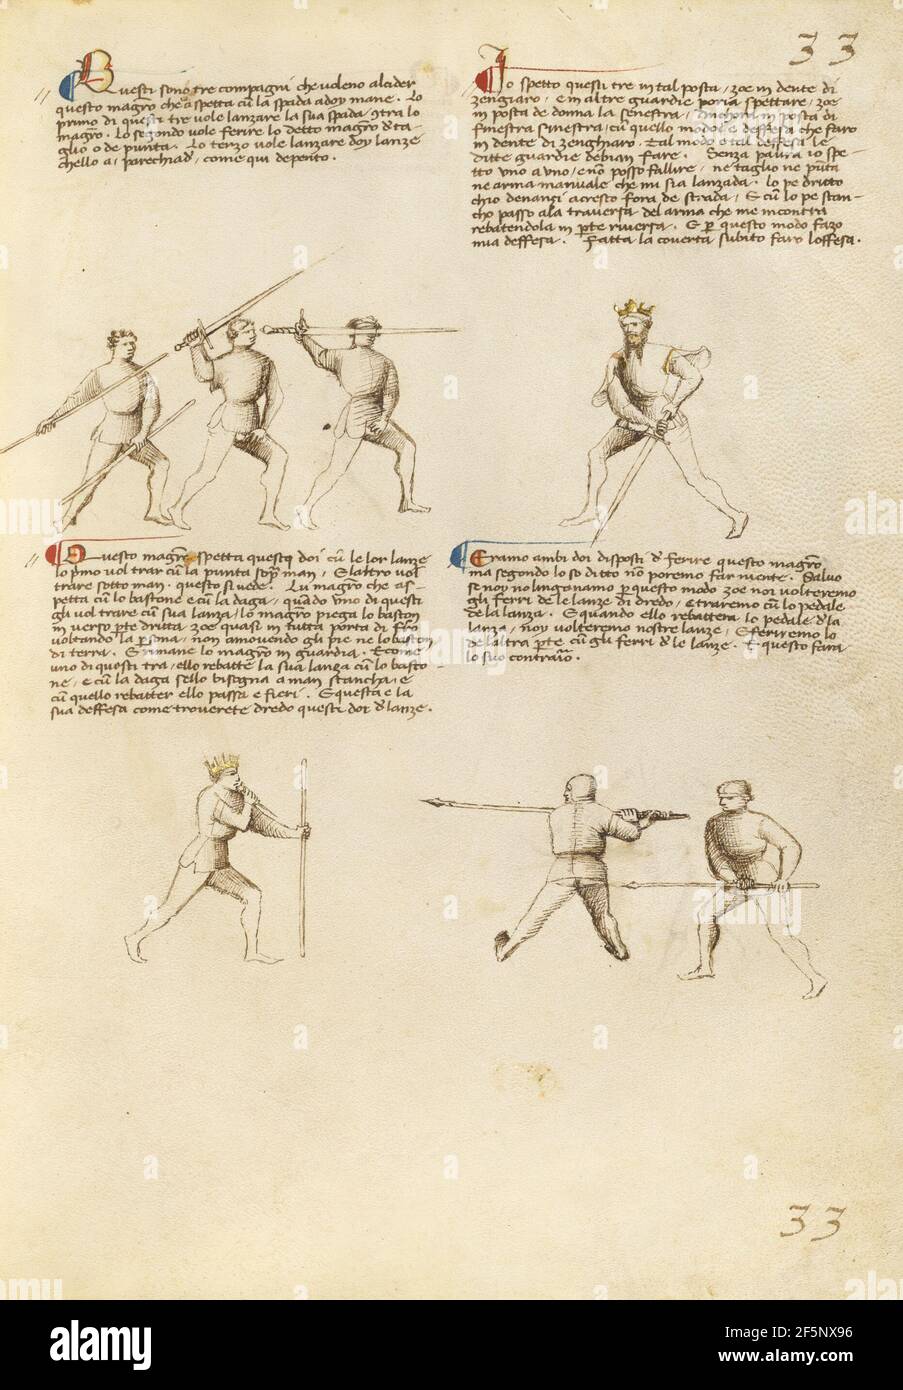 33
Questi sono tre compagni che voleno alcider
questo magro che aspetta cu la spada a doy mane. Lo
primo di questi tre vole lanzare la sua spada contra lo
magro. Lo segondo vole ferire lo detto magro d'ta-
glio o de punta. Lo terzo vole lanzare doy lanze
ch'ello a apparechiade, come qui depento.
Io spetto questi tre in tal posta, zoe in dente di
zengiaro, e in altre guardie poria spettare, zoe
in posta de donna la senestra, Anchora in posta di
finestra sinestra, cu quello modo e deffesa che faro
in dente di zenghiaro. Tal modo e tal deffesa le
ditte guardie debian fare. Senza paura io spe-
tto uno a uno, e non posso fallire, ne taglio ne punta
ne arma manuale che mi sia lanzada. Lo pe dritto
ch'io denanzi acresco fora de strada, E cu lo pe stan-
cho passo ala traversa del arma che me incontra
rebatendola in pte riversa. E p questo modo fazo
mia deffesa. Fatta la coverta subito faro l'offesa.
Questo magro spetta questi doi cu le lor lanze
lo pmo vol trar cu la punta sopra man, E l'altro vol
trare sotto man, questo si vede. Lu magro che as-
petta cu lo bastone e cu la daga, quando uno di questi
gli vol trare cu sua lanza, lo magro piega lo baston
in verso pte dritta, zoe quasi in tutta porta di ferro
voltando la psona, non amovendo gli pie ne lo baston
di terra. E rimane lo magro in guardia. E come
uno di questi tra, ello rebatte la sua lanza cu lo basto-
ne, e cu la daga s'ello bisogna a man stancha, e
cu quello rebatter ello passa e fieri. E questa e la
sua deffesa come troverete dredo questi doi d'lanze.
Eramo ambi doi disposti d'ferire questo magro
ma segondo lo so ditto non poremo far niente. Salvo
se noy no lingonamo p questo modo zoe noi volteremo
gli ferri de le lanze di dredo, e traremo cu lo pedale
de la lanza. E quando ello rebattera lo pedale d'la
lanza, noy volteremo nostre lanze, E feriremo lo
de l'altra pte cu gli ferri d'le lanze. E questo fara
lo suo contrario.
33
alamy
Image ID: 2F5NX96
www.alamy.com